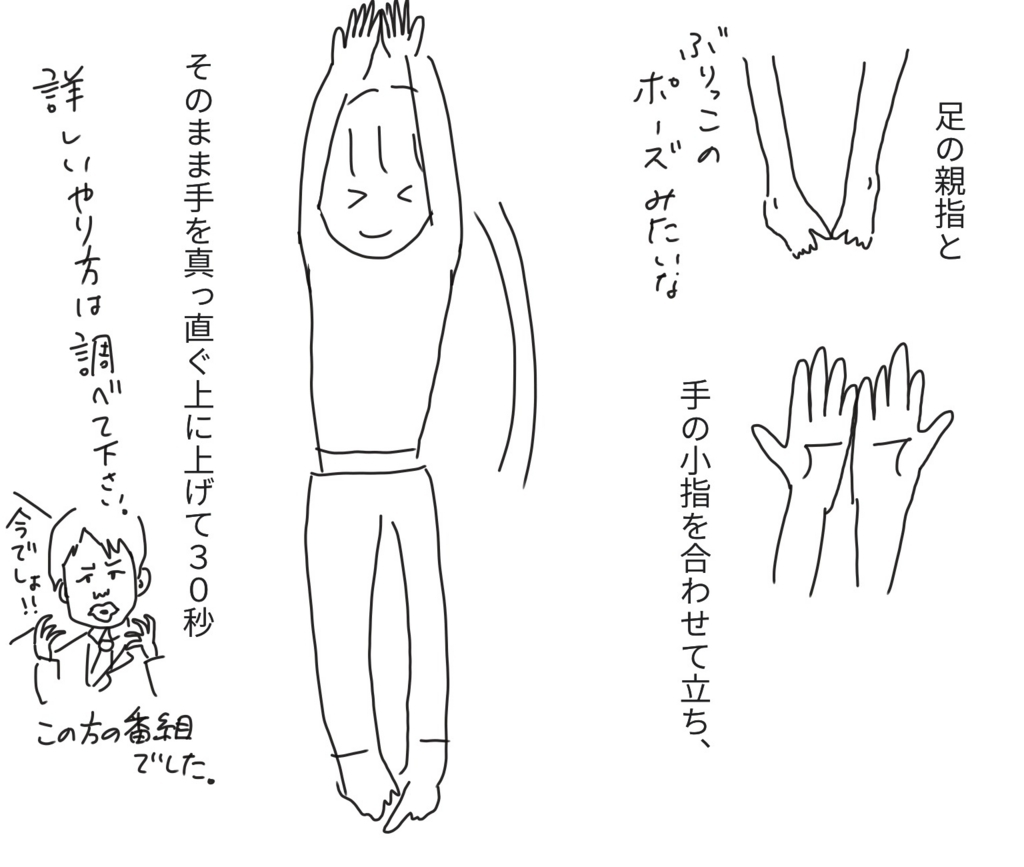 足の親指と
ぶりっこの
ポーズみたいな
手の小指を合わせて立ち、
そのまま手を真っ直ぐ上に上げて３０秒
詳しいやり方は調べて下さい。
今でしょ!!
この方の番組
でした。